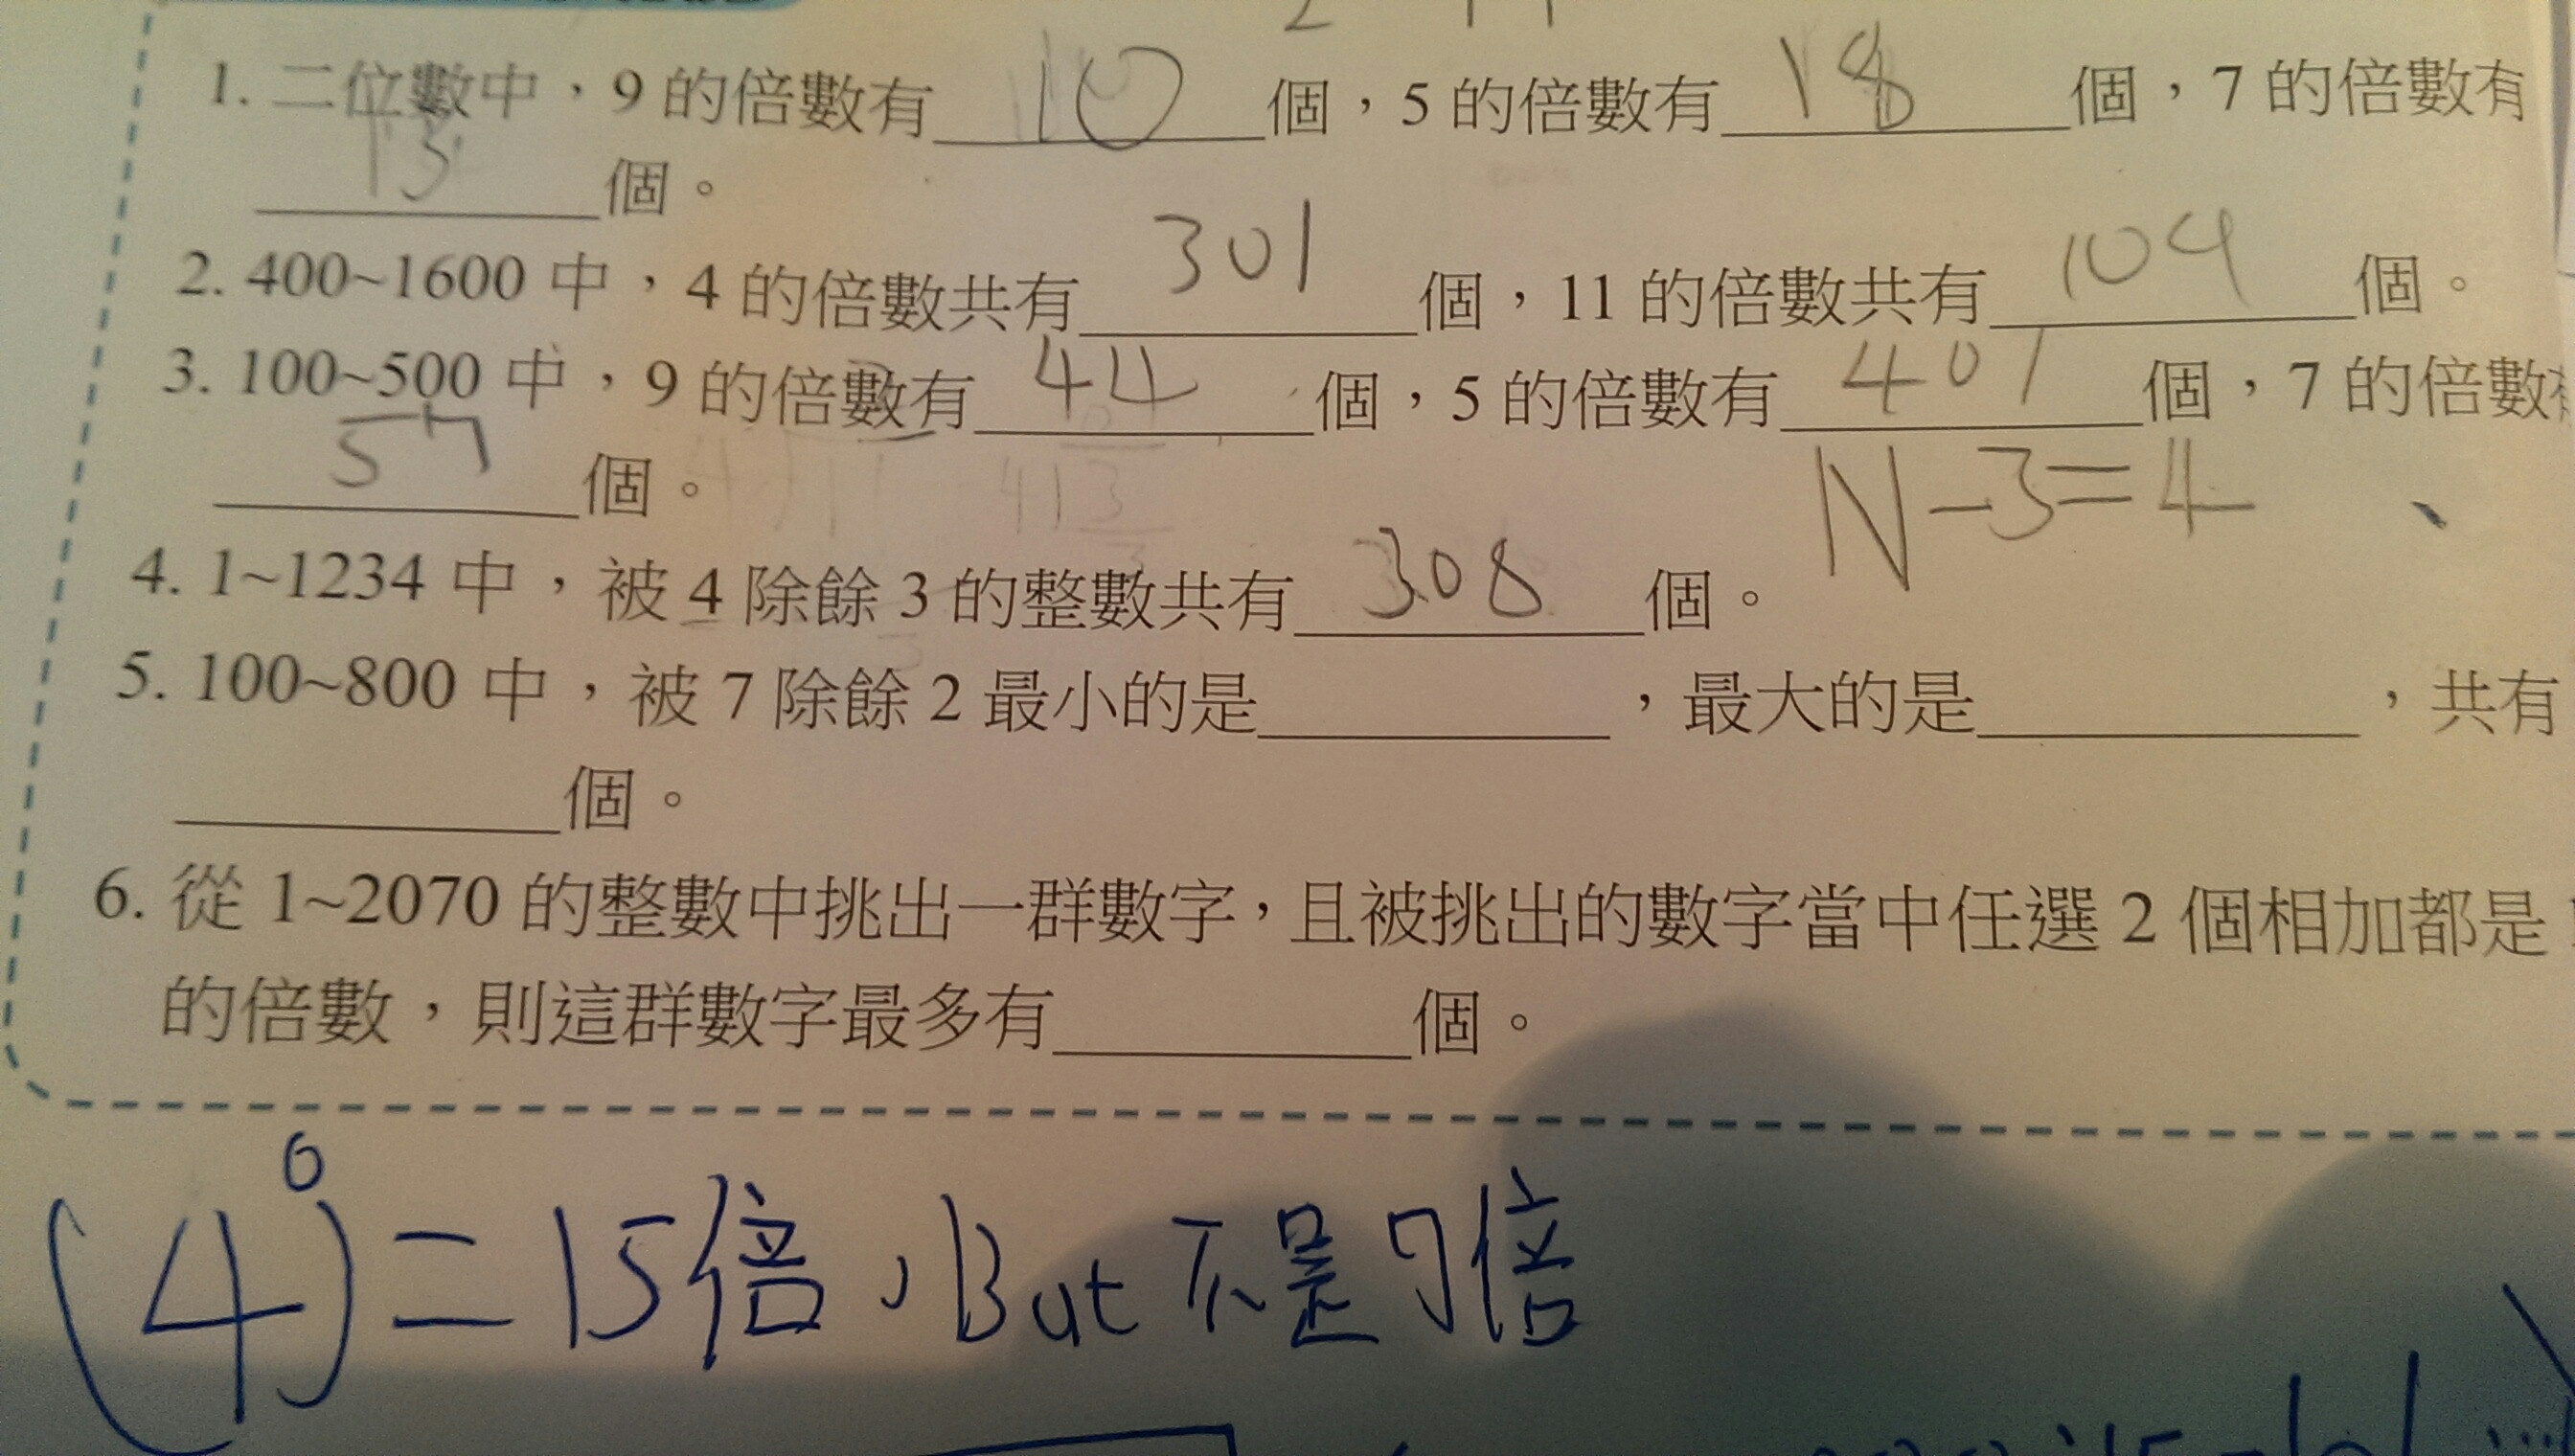 1. 二位數中，9 的倍數有 10 個，5 的倍數有 18 個，7 的倍數有
13 個。
2. 400~1600 中，4 的倍數共有 301 個，11 的倍數共有 109 個。
3. 100~500 中，9 的倍數有 44 個，5 的倍數有 401 個，7 的倍數
57 個。
N-3=4
4. 1~1234 中，被 4 除餘 3 的整數共有 308 個。
5. 100~800 中，被 7 除餘 2 最小的是＿＿＿，最大的是＿＿＿，共有
＿＿＿個。
6. 從 1~2070 的整數中挑出一群數字，且被挑出的數字當中任選 2 個相加都是
的倍數，則這群數字最多有＿＿＿個。
(4) = 15倍，But 不是7倍